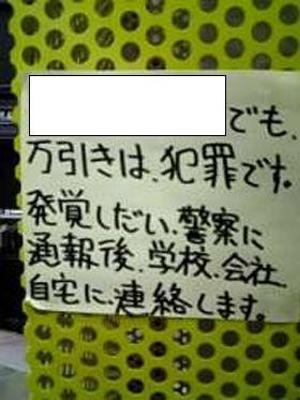 でも、
万引きは、犯罪です。
発覚しだい、警察に
通報後、学校、会社、
自宅に、連絡します。